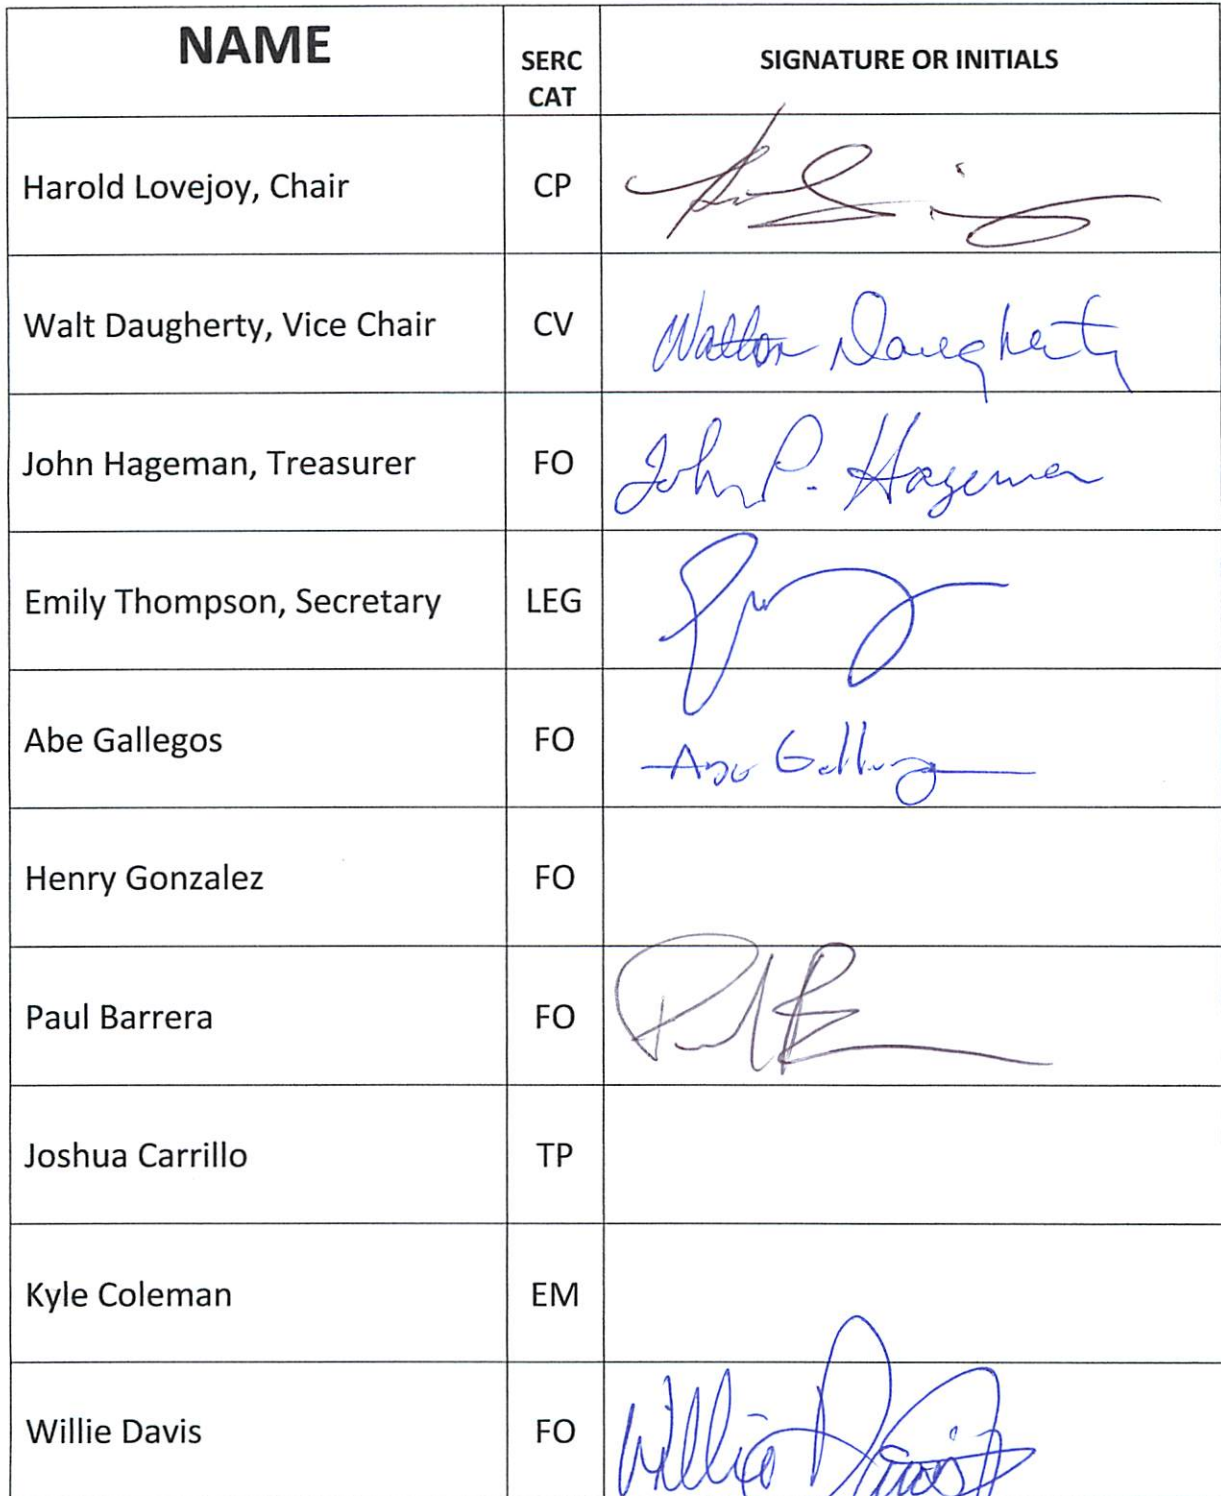 NAME SERC CAT SIGNATURE OR INITIALS
Harold Lovejoy, Chair CP
Walt Daugherty, Vice Chair CV Walton Daugherty
John Hageman, Treasurer FO John P. Hageman
Emily Thompson, Secretary LEG
Abe Gallegos FO Abe Gallegos
Henry Gonzalez FO
Paul Barrera FO
Joshua Carrillo TP
Kyle Coleman EM
Willie Davis FO Willie Davis